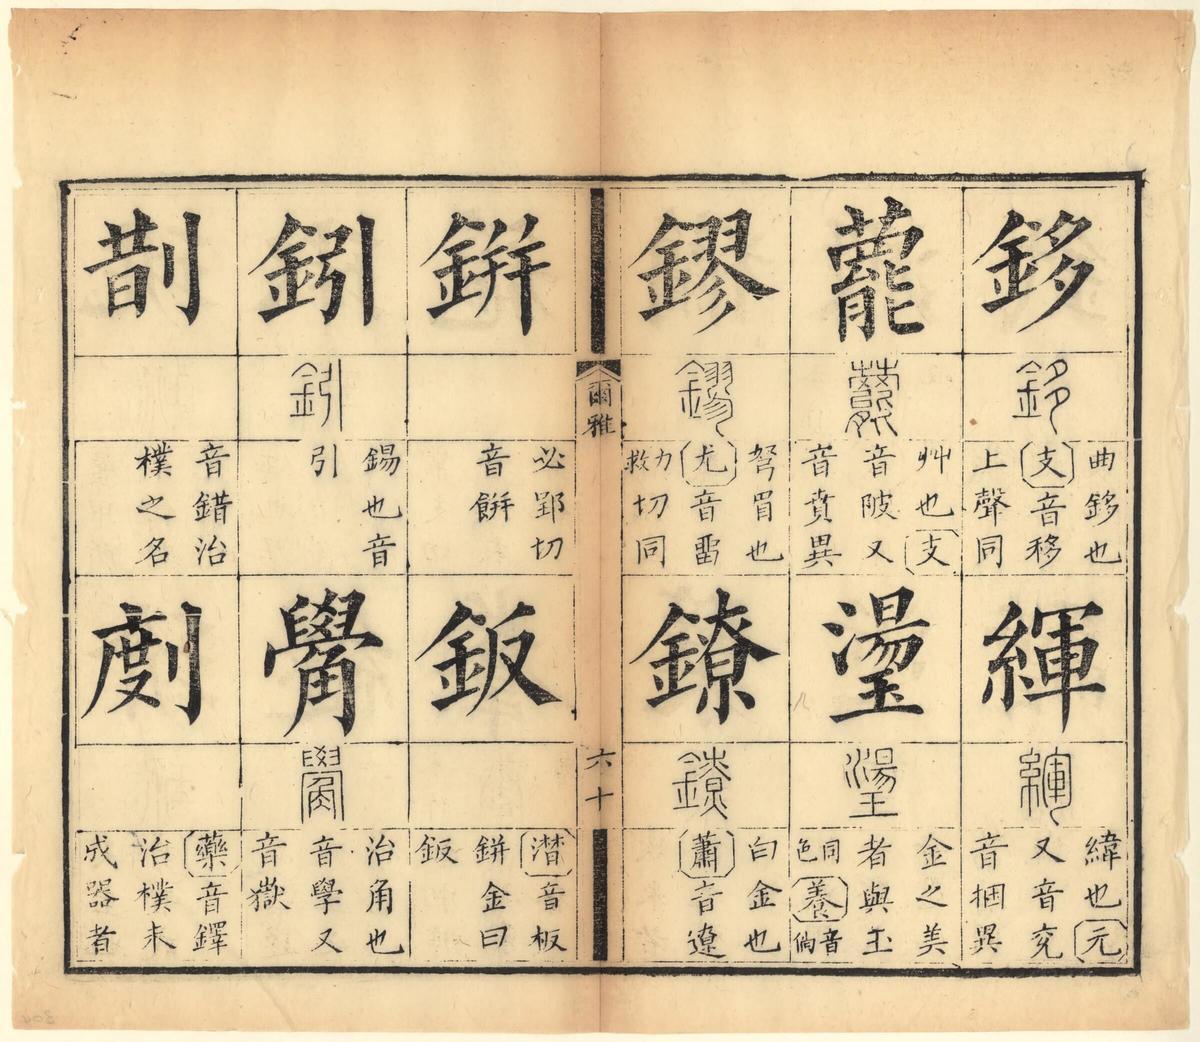 鉹
鉹
曲鉹也
支音移
上聲同
緷
緷
緯也元
又音兖
音捆異
藣
藣
艸也支
音陂又
音賁異
璗
璗
金之美
者與玉
同色養音倘
鏐
鏐
弩眉也
尤音畱
力救切同
鐐
鐐
白金也
蕭音遼
爾雅
六十
鉼
必郢切
音餅
鈑
潸音板
鉼金曰
鈑
鈏
鈏
錫也音
引
觷
觷
治角也
音學又
音嶽
剒
音錯治
樸之名
剫
藥音鐸
治樸未
成器者